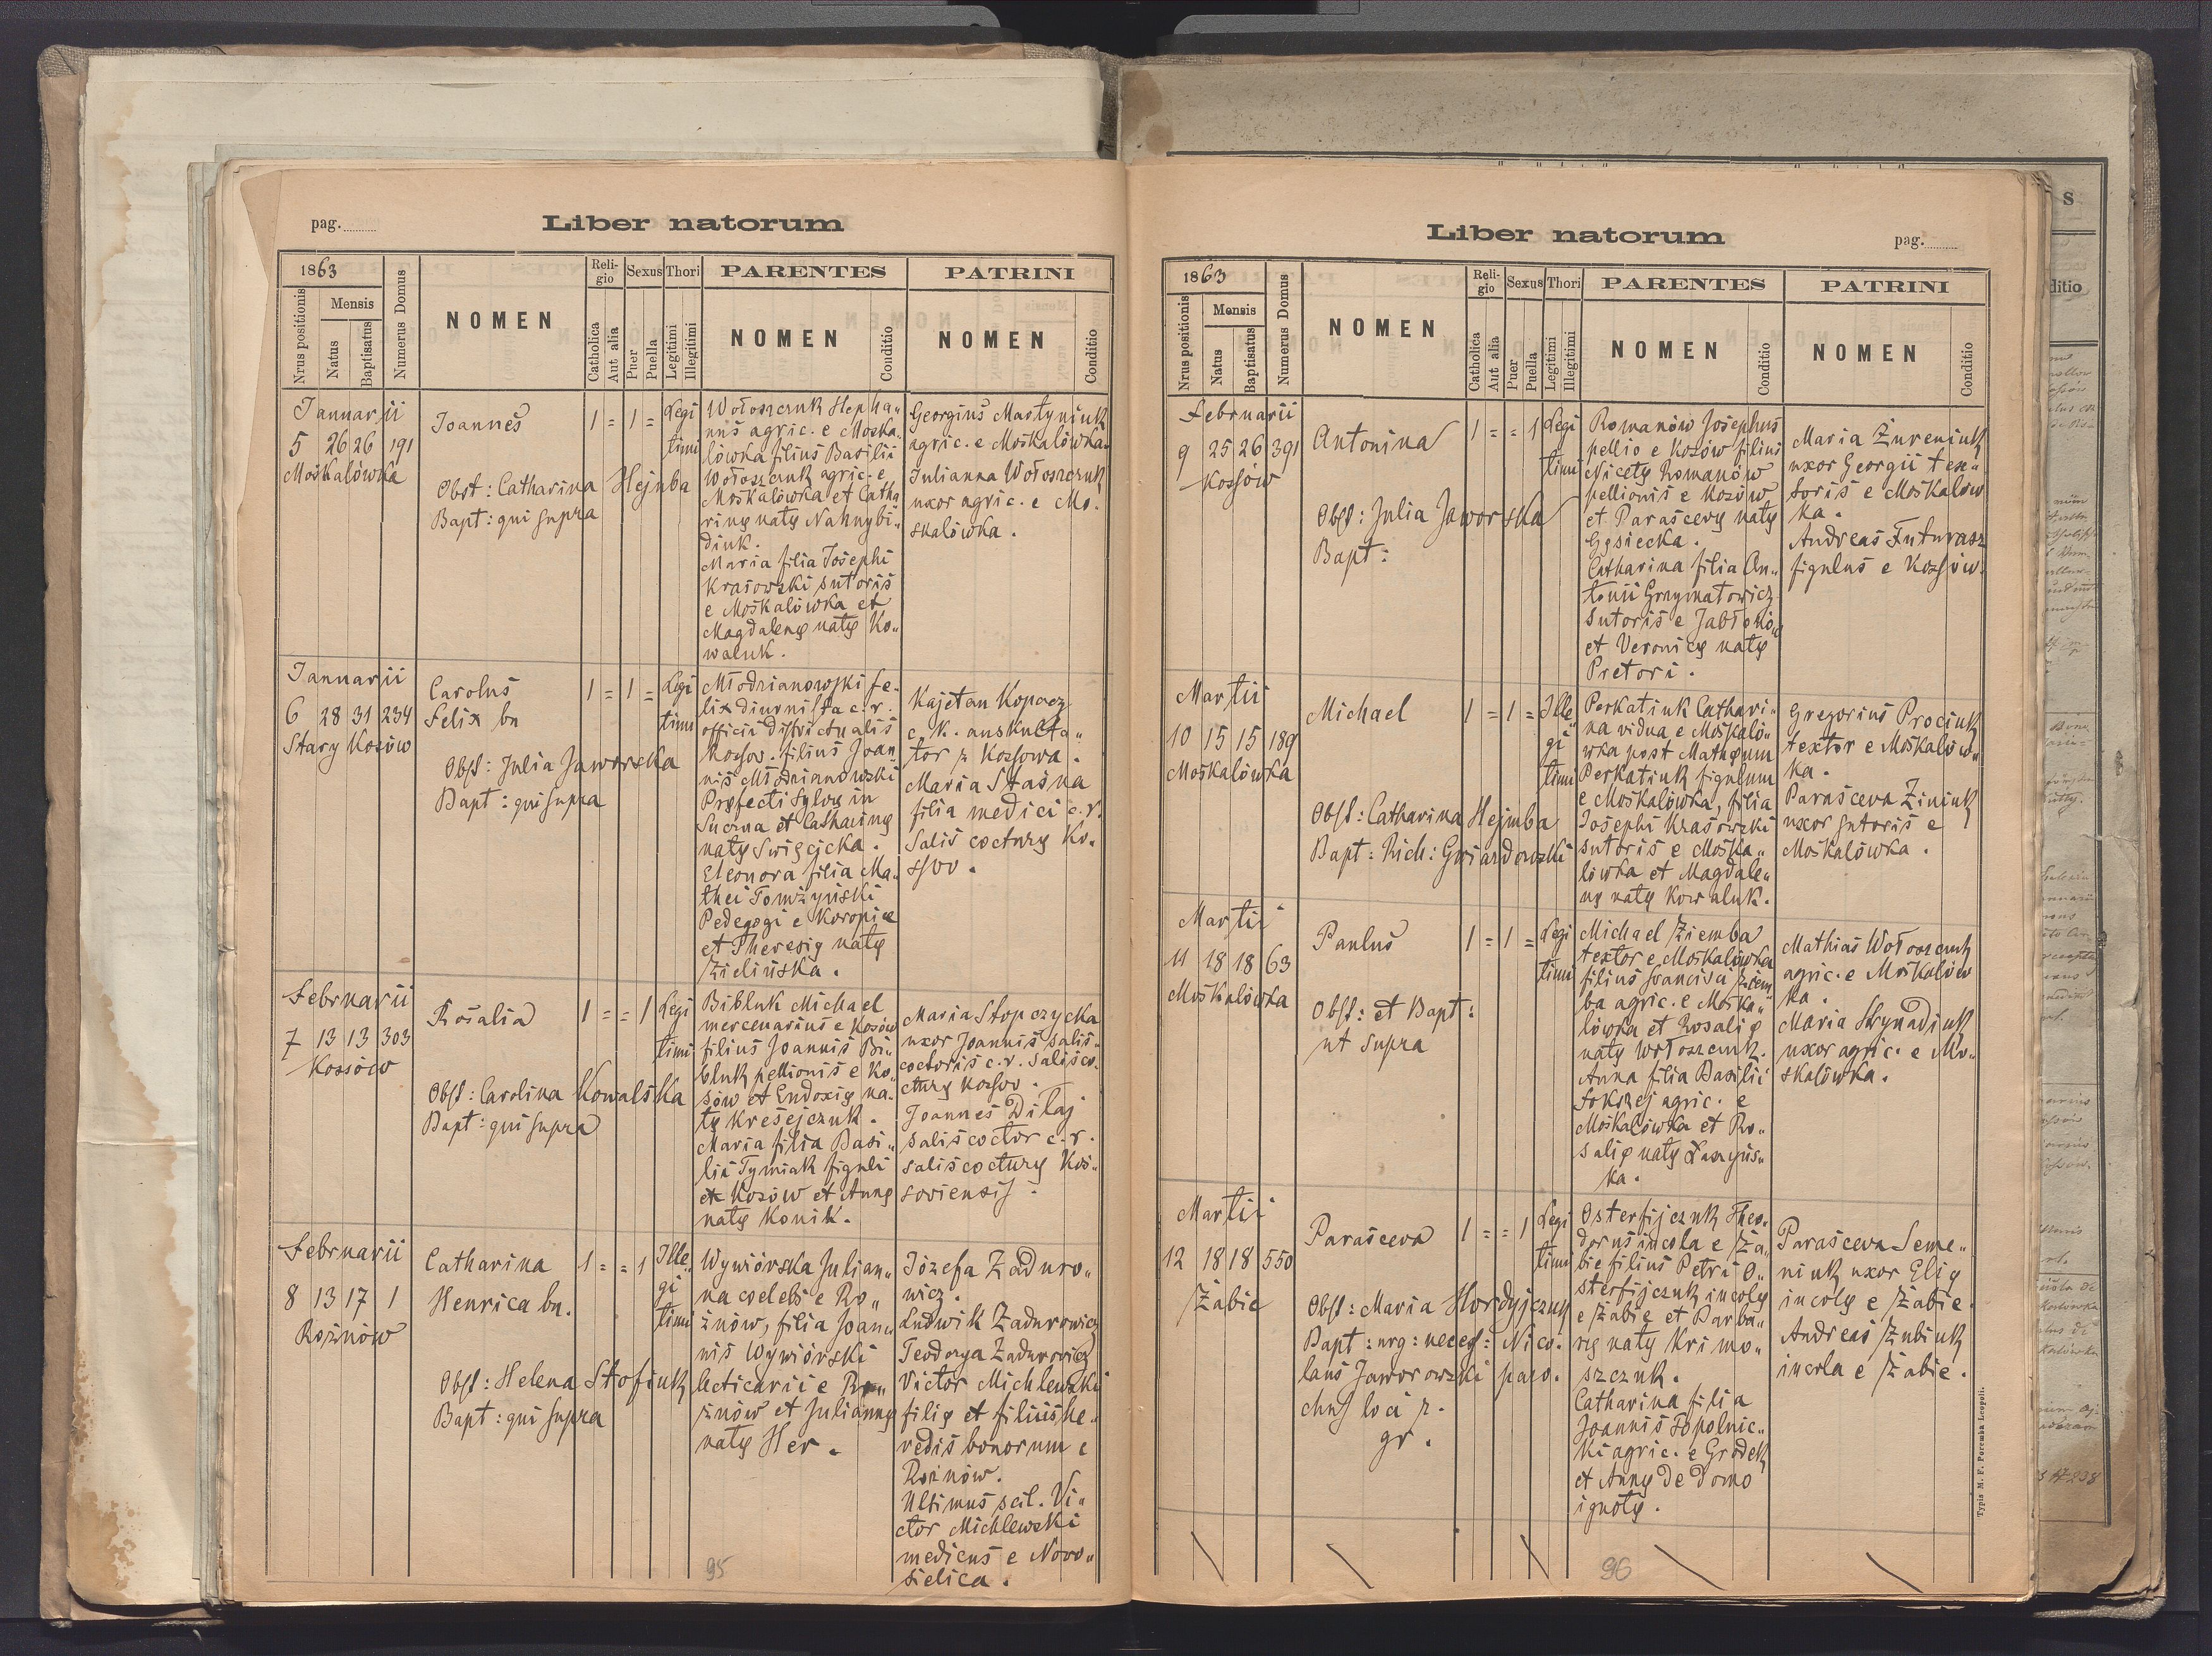 pag.
Liber natorum
1863
Nrus positionis
Mensis
Natus
Baptisatus
Numerus Domus
NOMEN
Religio
Catholica
Aut alia
Sexus
Puer
Puella
Thori
Legitimi
Illegitimi
PARENTES
NOMEN
Conditio
PATRINI
NOMEN
Conditio
Januarii
5 26 26 191
Moskalówka
Joannes
Obst: Catharina Hejnba
Bapt: qui supra
1 = 1 =
Legi
timi
Wołoszczuk Stepha„
nus agric. e Moska„
lówka filius Basilii
Wołoszczuk agric. e
Moskalówka et Catha
rinę natę Nahnybi„
diuk.
Maria filia Josephi
Krasowski sutoris
e Moskalówka et
Magdalenę natę Ko„
waluk.
Georgius Martyniuk
agric. e Moskalówka
Julianna Wołoszczuk
uxor agric. e Mo.
skalówka.
Januarii
6 28 31 234
Stary Kosów
Carolus
Felix bn
Obst: Julia Jaworska
Bapt: qui supra
1 = 1 =
Legi
timi
Młodzianowski Fe.
lix diurnista c. r.
officii districtualis
Kossov. filius Joan
nis Młodzianowski
Pręfecti sylvę in
et Catharinę
natę Swięcicka.
Eleonora filia Ma„
thei Tomżyński
Pedegogi e Koropiec
et Theresię natę
Zielińska.
Kajetan Kopacz
c. k. auskulta„
tor z Kossowa.
Maria Stasna
filia medici c. r.
Salis cocturę Ko.
ssov.
Februarii
7 13 13 303
Kossów
Rosalia
Obst: Carolina Kowalska
Bapt: qui supra
1 = = 1
Legi
timi
Bibluk Michael
mercenarius e Kosów
filius Joannis Bi„
bluk pellionis e Ko„
sów et Eudoxię na„
tę Kresejczuk.
Maria filia Basi„
lii Tymiak figuli
ex Kosów et Annę
natę Konik.
Maria Stopczycka
uxor Joannis salis„
coctoris c. r. salisco„
cturę Kossov.
Joannes Dilaj
saliscoctor c. r.
saliscocturę Kos„
soviensis.
Februarii
8 13 17 1
Rożnów
Catharina
Henrica bn.
Obst: Helena Stofiuk
Bapt: qui supra
1 = = 1
Ille„
gi
timi
Wywiórska Julian„
na coelebs e Ro„
żnów, filia Joan„
nis Wywiórski
lecticarii e Ro„
żnów et Juliannę
natę Her.
Józefa Zaduro„
wicz.
Ludwik Zadurowicz
Teodozya Zadurowicz
Victor Michlewski
filię et filius he„
redis bonorum e
Rożnów.
Ultimus scil. Vi„
ctor Michlewski
medicus e Nowo„
sielica.
95
Liber natorum
pag.
1863
Nrus positionis
Mensis
Natus
Baptisatus
Numerus Domus
NOMEN
Religio
Catholica
Aut alia
Sexus
Puer
Puella
Thori
Legitimi
Illegitimi
PARENTES
NOMEN
Conditio
PATRINI
NOMEN
Conditio
Februarii
9 25 26 391
Kossów
Antonina
Obst: Julia Jaworska
Bapt:
1 = = 1
Legi
timi
Romanów Josephus
pellio e Kosów filius
Nicetę Romanów
pellionis e Kosów
et Parascevę natę
Gęsiecka.
Catharina filia An„
tonii Grzymatowicz
sutoris e Jabłonów
et Veronicę natę
Pretori.
Maria Żureniuk
uxor Georgii tex„
toris e Moskalów
ka.
Andreas Futurasz
figulus e Kossów.
Martii
10 15 15 189
Moskalówka
Michael
Obst: Catharina Hejmba
Bapt: Rich: Gwiazdowski
1 = 1 =
Ille„
gi
timi
Perkatiuk Cathari„
na vidua e Moskaló„
wka post Mathęum
Perkatiuk figulum
e Moskalówka, filia
Josephi Krasowski
sutoris e Moska„
lówka et Magdale„
nę natę Kowaluk.
Gregorius Prociuk
textor e Moskalów„
ka.
Parasceva Ziniuk
uxor sutoris e
Moskalówka.
Martii
11 18 18 63
Moskalówka
Paulus
Obst: et Bapt:
ut supra
1 = 1 =
Legi
timi
Michael Ziemba
textor e Moskalówka
filius Francisci Ziem„
ba agric. e Moska„
lówka et Rosalię
natę Wołoszczuk.
Anna filia Basilii
Fokszej agric. e
Moskalówka et Ro„
salię natę Łaszyńs„
ka.
Mathias Wołoszczuk
agric. e Moskalów
ka.
Maria Skrynadiuk
uxor agric. e Mo„
skalówka.
Martii
12 18 18 550
Żabie
Parasceva
Obst: Maria Hordyjczuk
Bapt: urg: neces: Nico.
laus Jaworowski paro.
chus loci r.
gr.
1 = = 1
Legi
timi
Osterfijczuk Theo.
dorus incola e Ża„
bie filius Petri O„
sterfijczuk incolę
e Żabie et Barba„
rę natę Krimo„
szczuk.
Catharina filia
Joannis Topolnic„
ki agric. e Grodek
et Annę de domo
ignotę.
Parasceva Seme„
niuk uxor Elię
incolę e Żabie.
Andreas Zubiuk
incola e Żabie.
96
Typis M. F. Poremba Leopoli.